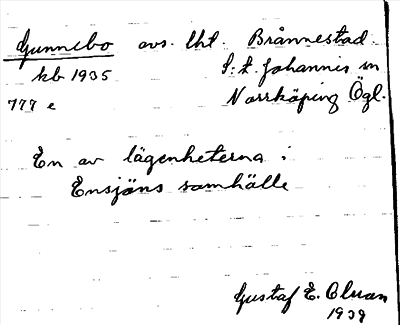 Gunnebo avs. lht. Brånnestad.
kb 1935 S:t Johannis sn
777 e Norrköping Ögl.
En av lägenheterna i
Ensjöns samhälle
Gustaf E.
1939